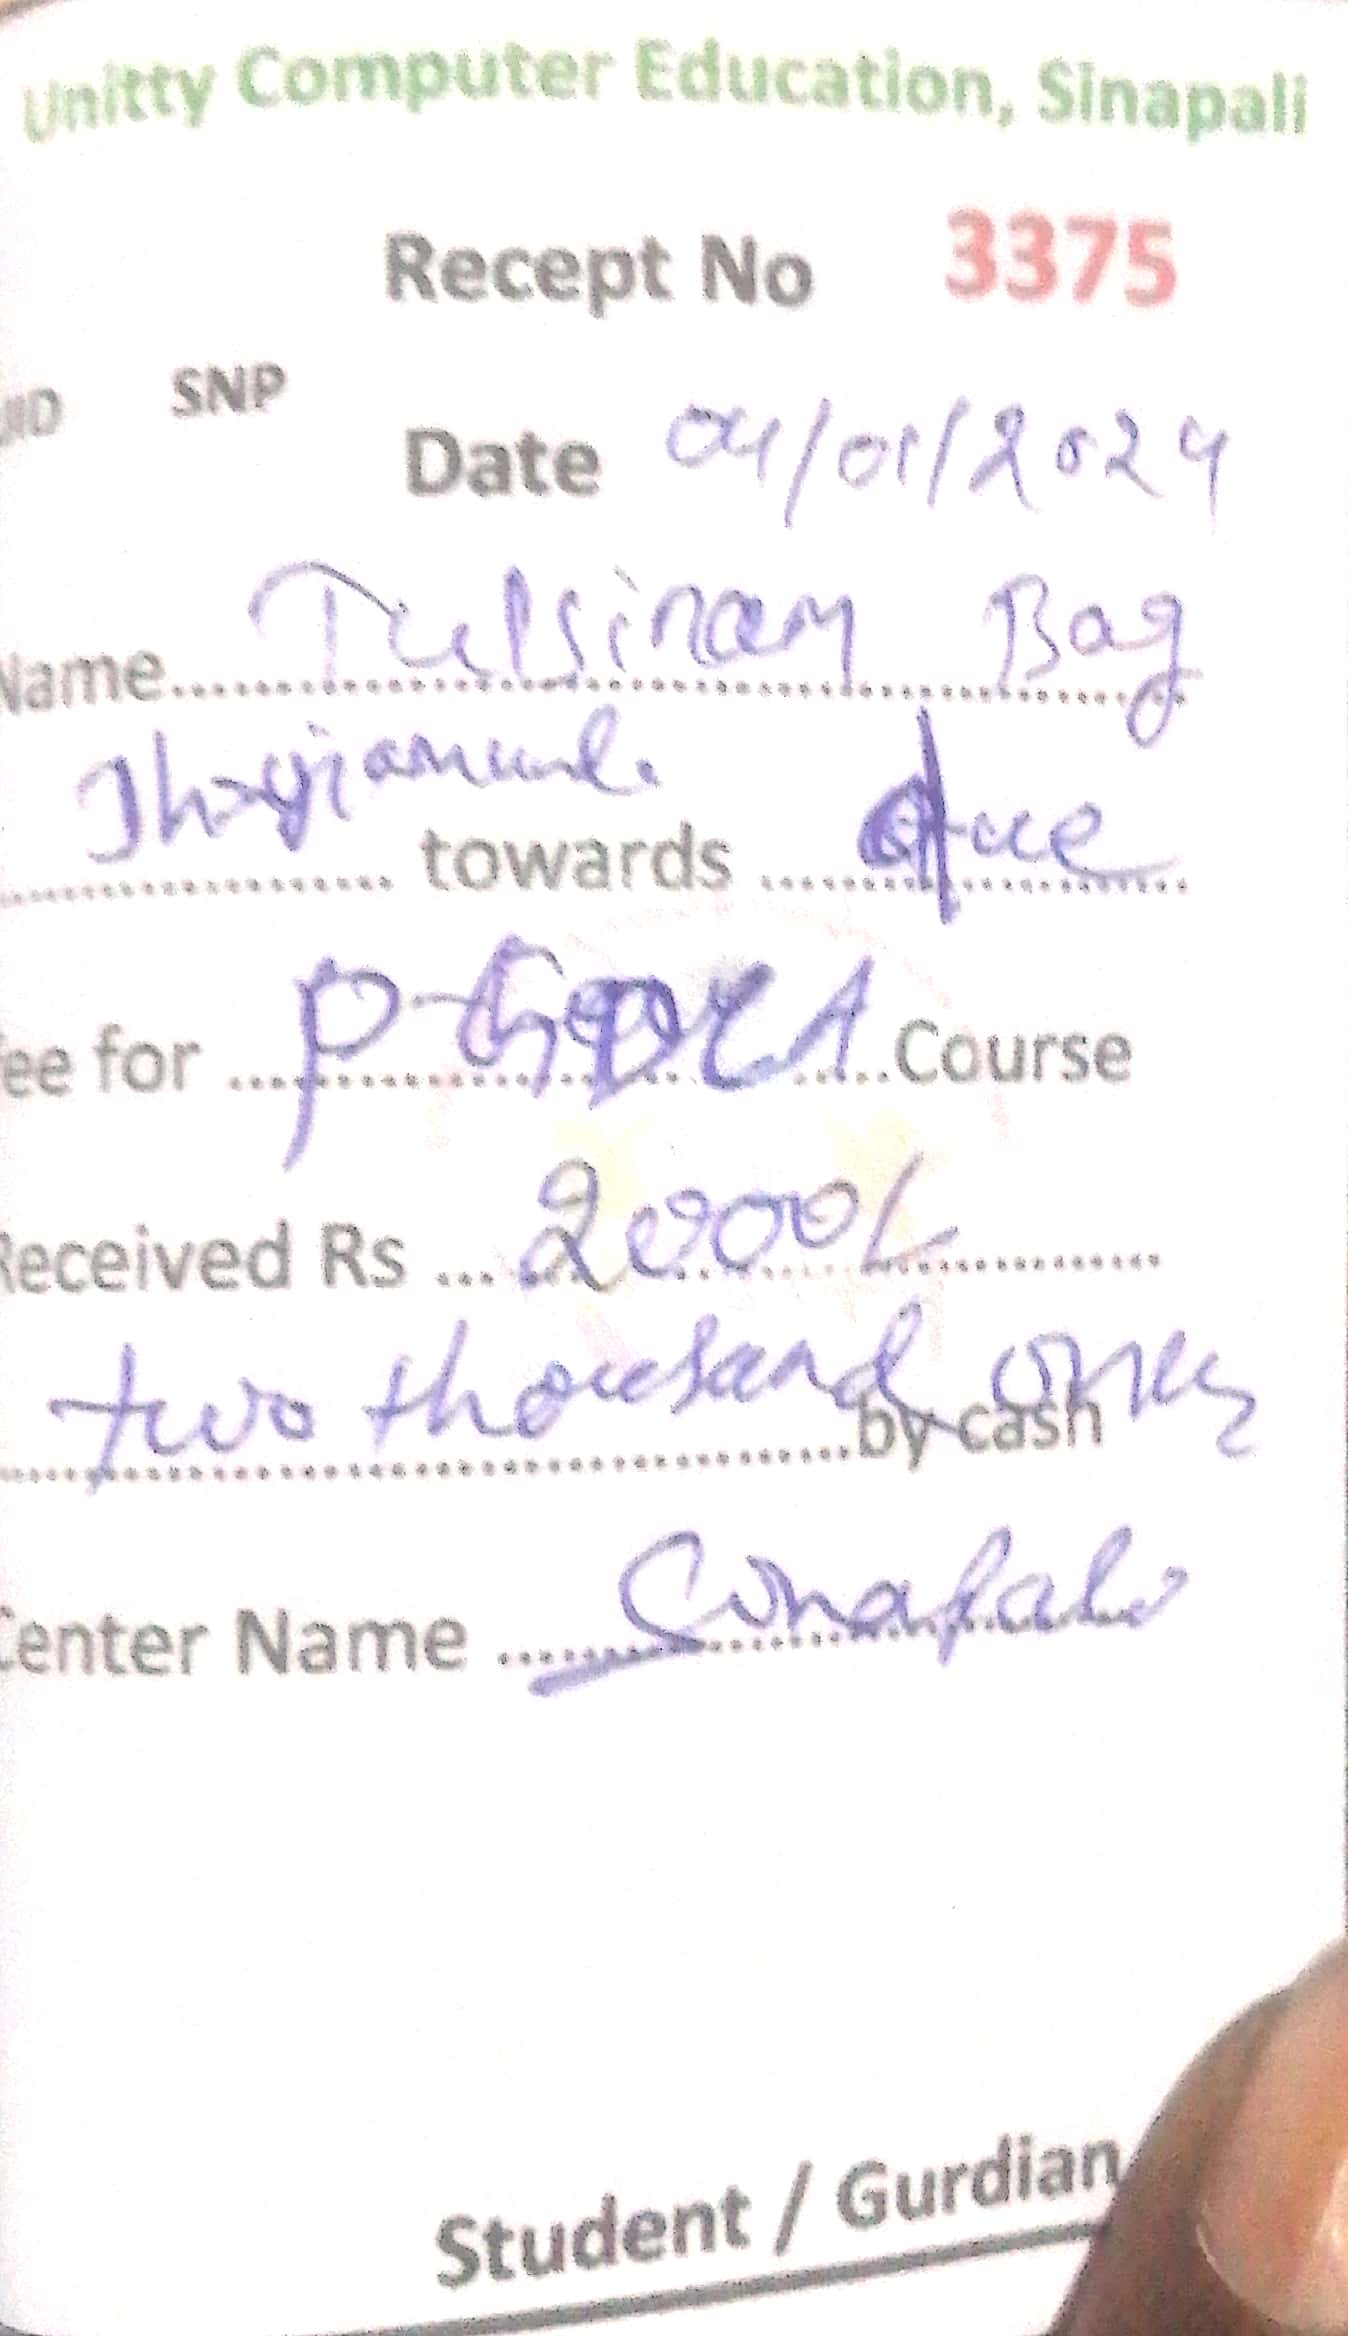 Unitty Computer Education, Sinapali
Recept No 3375
UID SNP
Date 04/01/2024
Name Tulsiram Bag
towards due
ee for Course
Received Rs 2000/-
two thousand only
by cash
Center Name Sinapali
Student / Gurdian